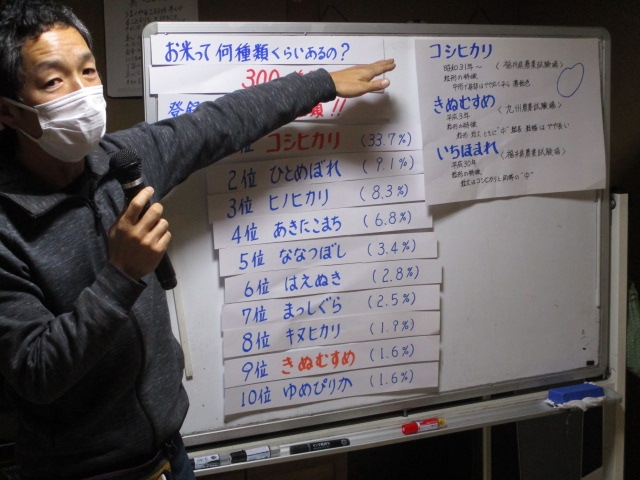 お米って何種類くらいあるの？
300
登録
類!!
位 コシヒカリ (33.7%)
2位 ひとめぼれ (9.1%)
3位 ヒノヒカリ (8.3%)
4位 あきたこまち (6.8%)
5位 ななつぼし (3.4%)
6位 はえぬき (2.8%)
7位 まっしぐら (2.5%)
8位 キヌヒカリ (1.9%)
9位 きぬむすめ (1.6%)
10位 ゆめぴりか (1.6%)
コシヒカリ
昭和31年〜 (福井県農業試験場)
粒形の特徴
きぬむすめ (九州農業試験場)
平成3年
粒形の特徴
いちほまれ (福井県農業試験場)
平成30年
粒形の特徴
粒大はコシヒカリと同等の"中"